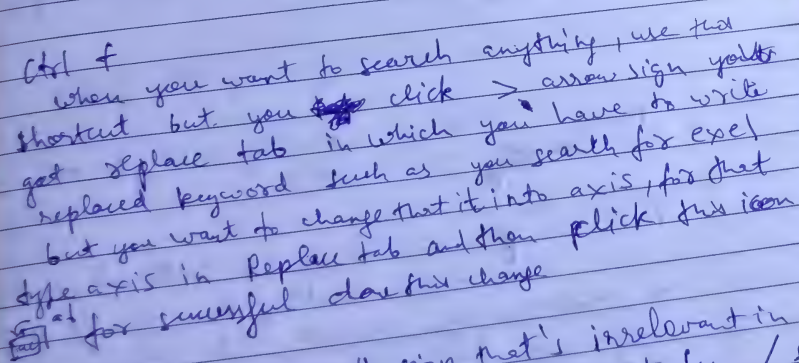 Ctrl f
when you want to search anything, use this
shortcut but you click > arrow sign you
get replace tab in which you have to write
replaced keyword such as you search for exel
but you want to change that it into axis, for that
type axis in Replace tab and then click this icon
for successful done this change
that's irrelevant in